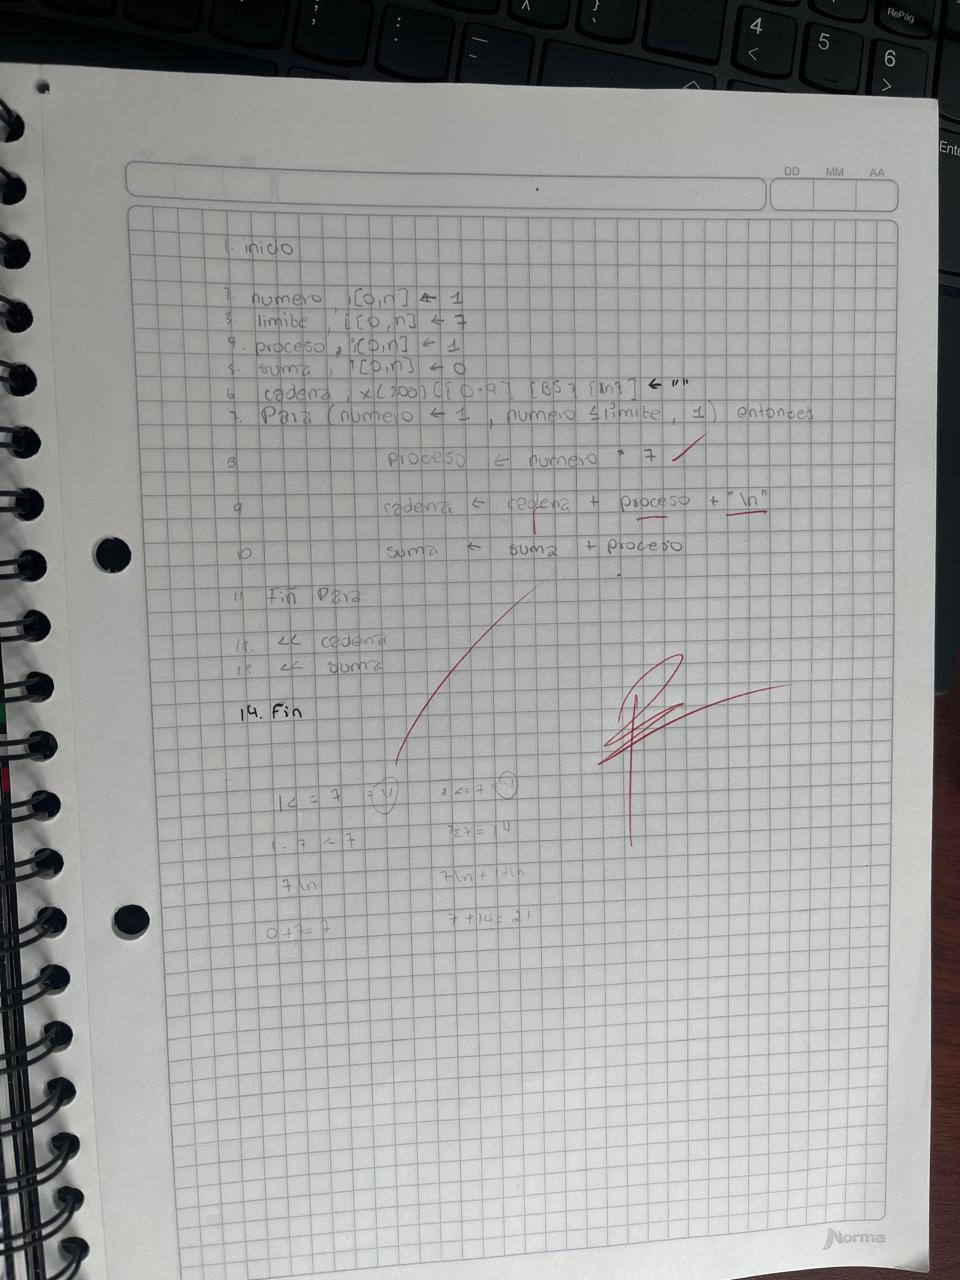 RePág
4
5
6
Ente
DD MM AA
1. inicio
2. numero, i[0,n] ← 1
3. limite, i[0,n] ← 7
4. proceso, i[0,n] ← 1
5. suma, i[0,n] ← 0
6 cadena, x(200) {[0-9] [BS] [\n]} ← ""
7. Para (numero ← 1, numero ≤ limite, 1) entonces
8 proceso ← numero * 7
9 cadena ← cadena + proceso + "\n"
10 suma ← suma + proceso
11 Fin Para
12. << cadena
13. << suma
14. Fin
1 <= 7 = V
1 . 7 = 7
7\n
0+7=7
2 <= 7 =
7\n + 14\n
7 + 14 = 21
Norma